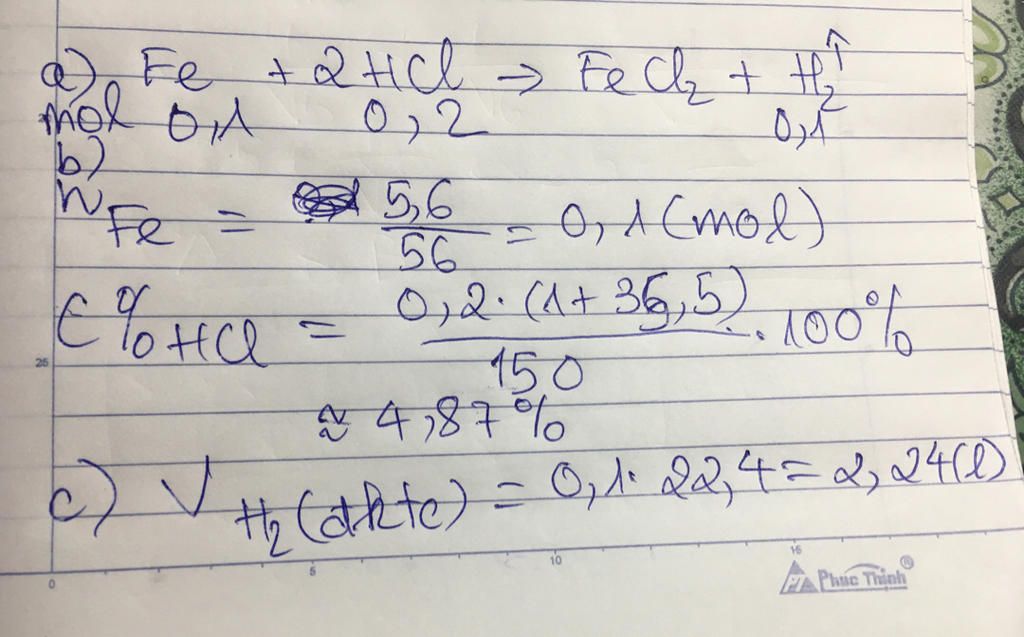 a) Fe + 2HCl → FeCl₂ + H₂↑
mol 0,1 0,2 0,1
b)
n Fe = 5,6 / 56 = 0,1 (mol)
C% HCl = 0,2·(1+36,5) / 150 · 100%
≈ 4,87%
c) V H₂ (đktc) = 0,1·22,4 = 2,24(l)
25
0 5 10 15
Phuc Thinh®